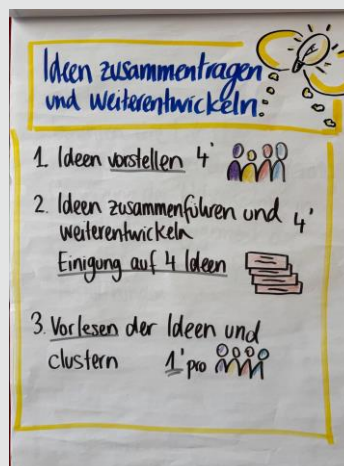 Ideen zusammentragen
und weiterentwickeln:
1. Ideen vorstellen 4'
2. Ideen zusammenführen und 4'
weiterentwickeln
Einigung auf 4 Ideen
3. Vorlesen der Ideen und
clustern 1' pro